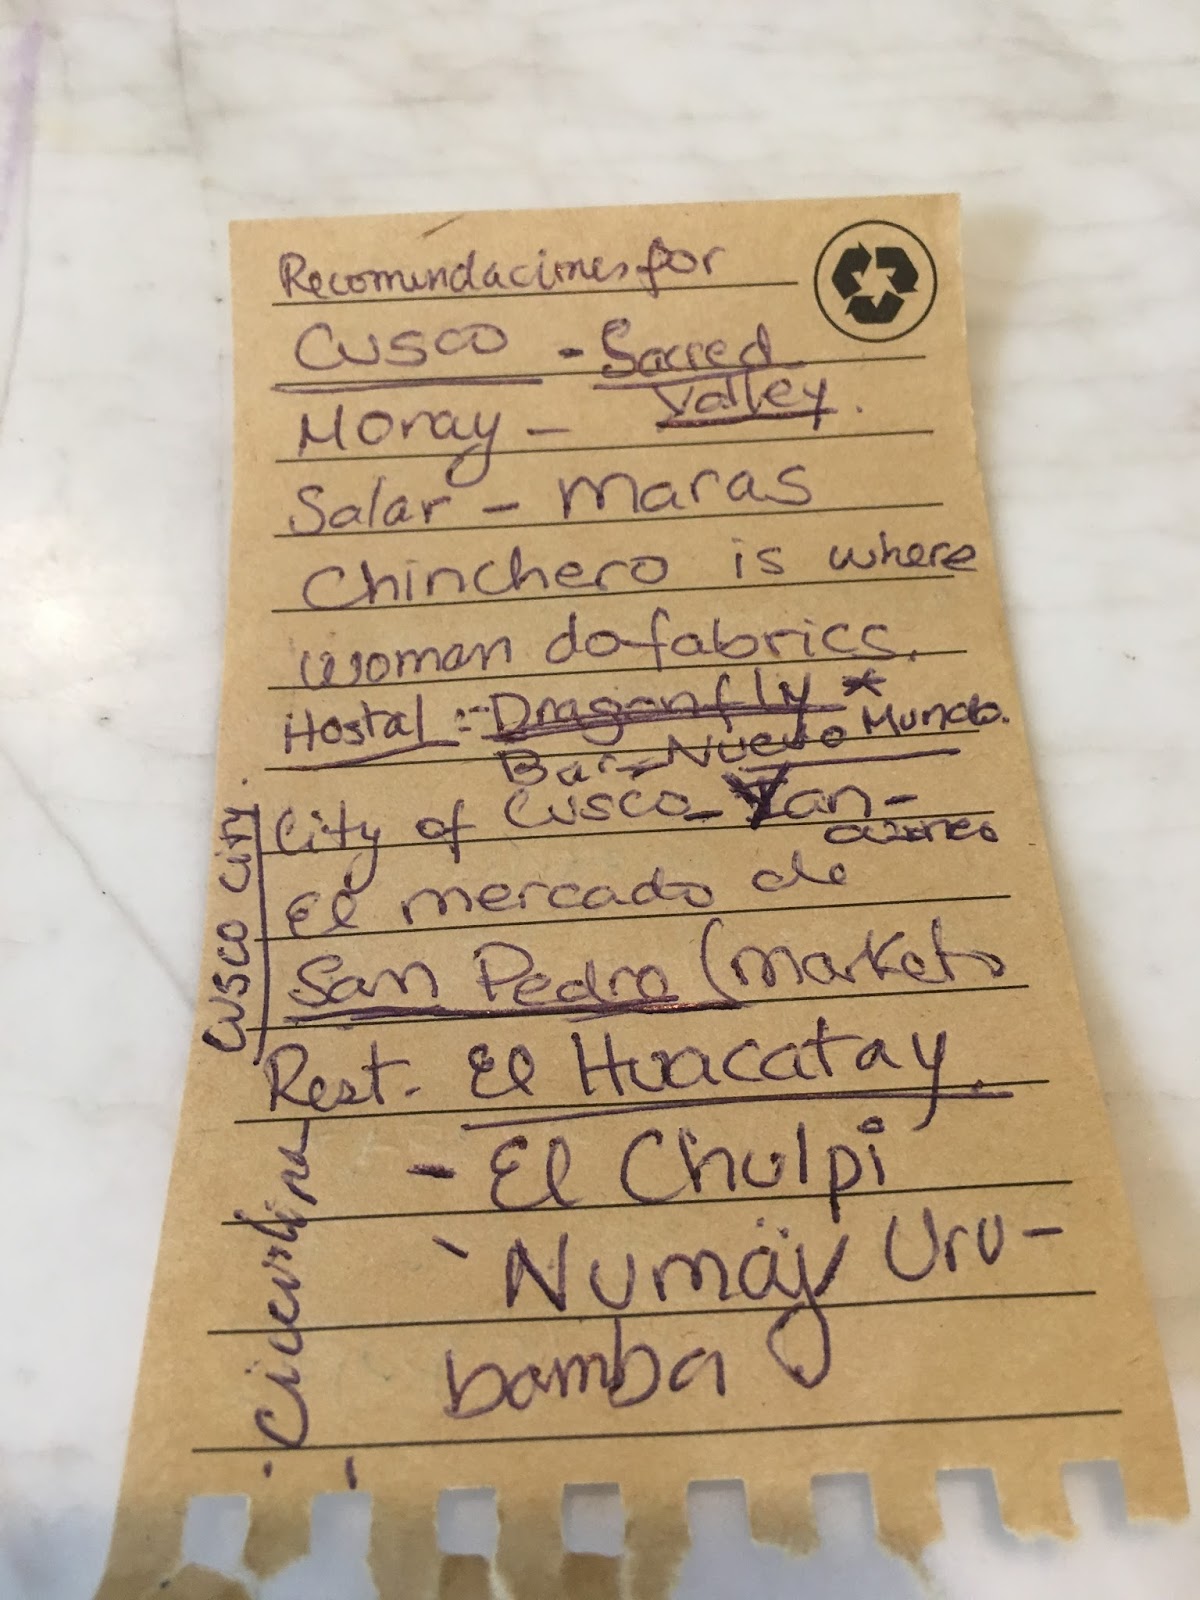 Recomendaciones for
Cusco - Sacred
Valley.
Moray -
Salar - Maras
Chinchero is where
woman do fabrics.
Hostal :- Dragonfly *
Bar - Nuevo Mundo.
City of Cusco - Yan-
El mercado de
San Pedro (market)
Rest. El Huacatay.
- El Chulpi
- Numay Uru-
bamba
Cusco City.